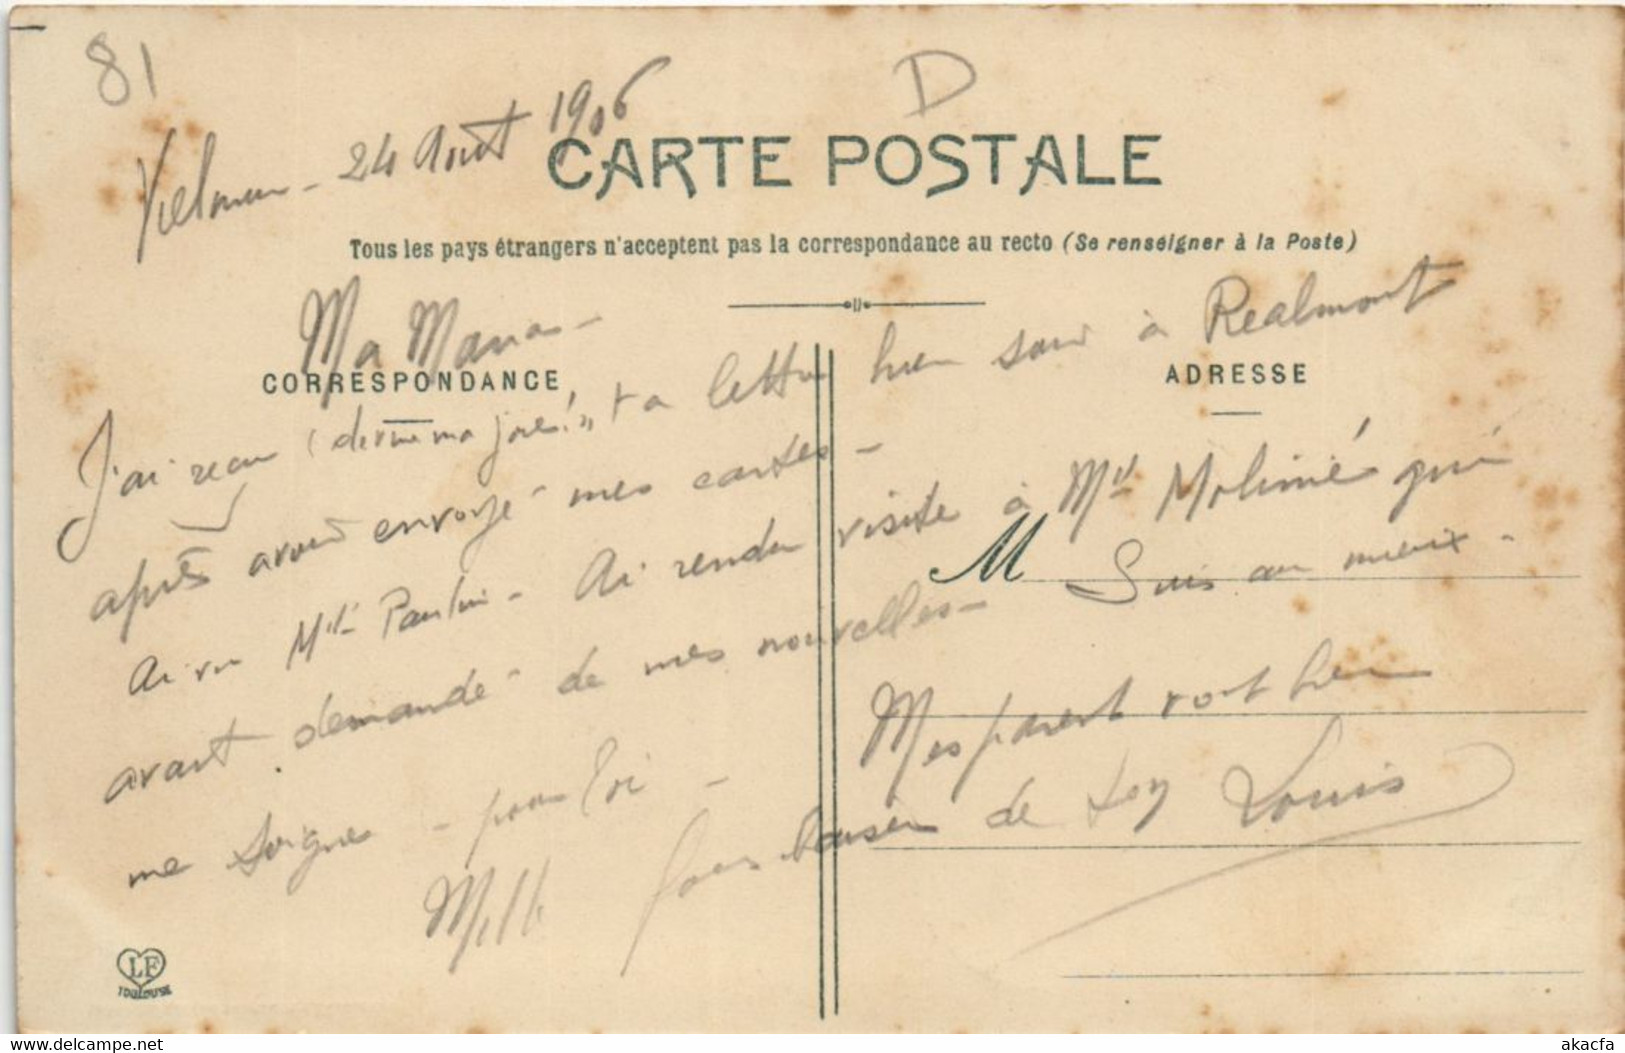 81
D
Vielmur - 24 Août 1906
CARTE POSTALE
Tous les pays étrangers n'acceptent pas la correspondance au recto (Se renseigner à la Poste)
Ma Mana -
CORRESPONDANCE
ADRESSE
J'ai reçu ta lettre hier soir à Realmont
après avoir envoyé mes cartes -
Ai vu Mlle Paulin - Ai rendu visite à Mr Molinié qui
M
avait demandé de mes nouvelles - Suis au mieux -
me soigne - pour toi - Mes parent vont bien
Mille baisers de ton Louis
LF
TOULOUSE
delcampe.net
akacfa